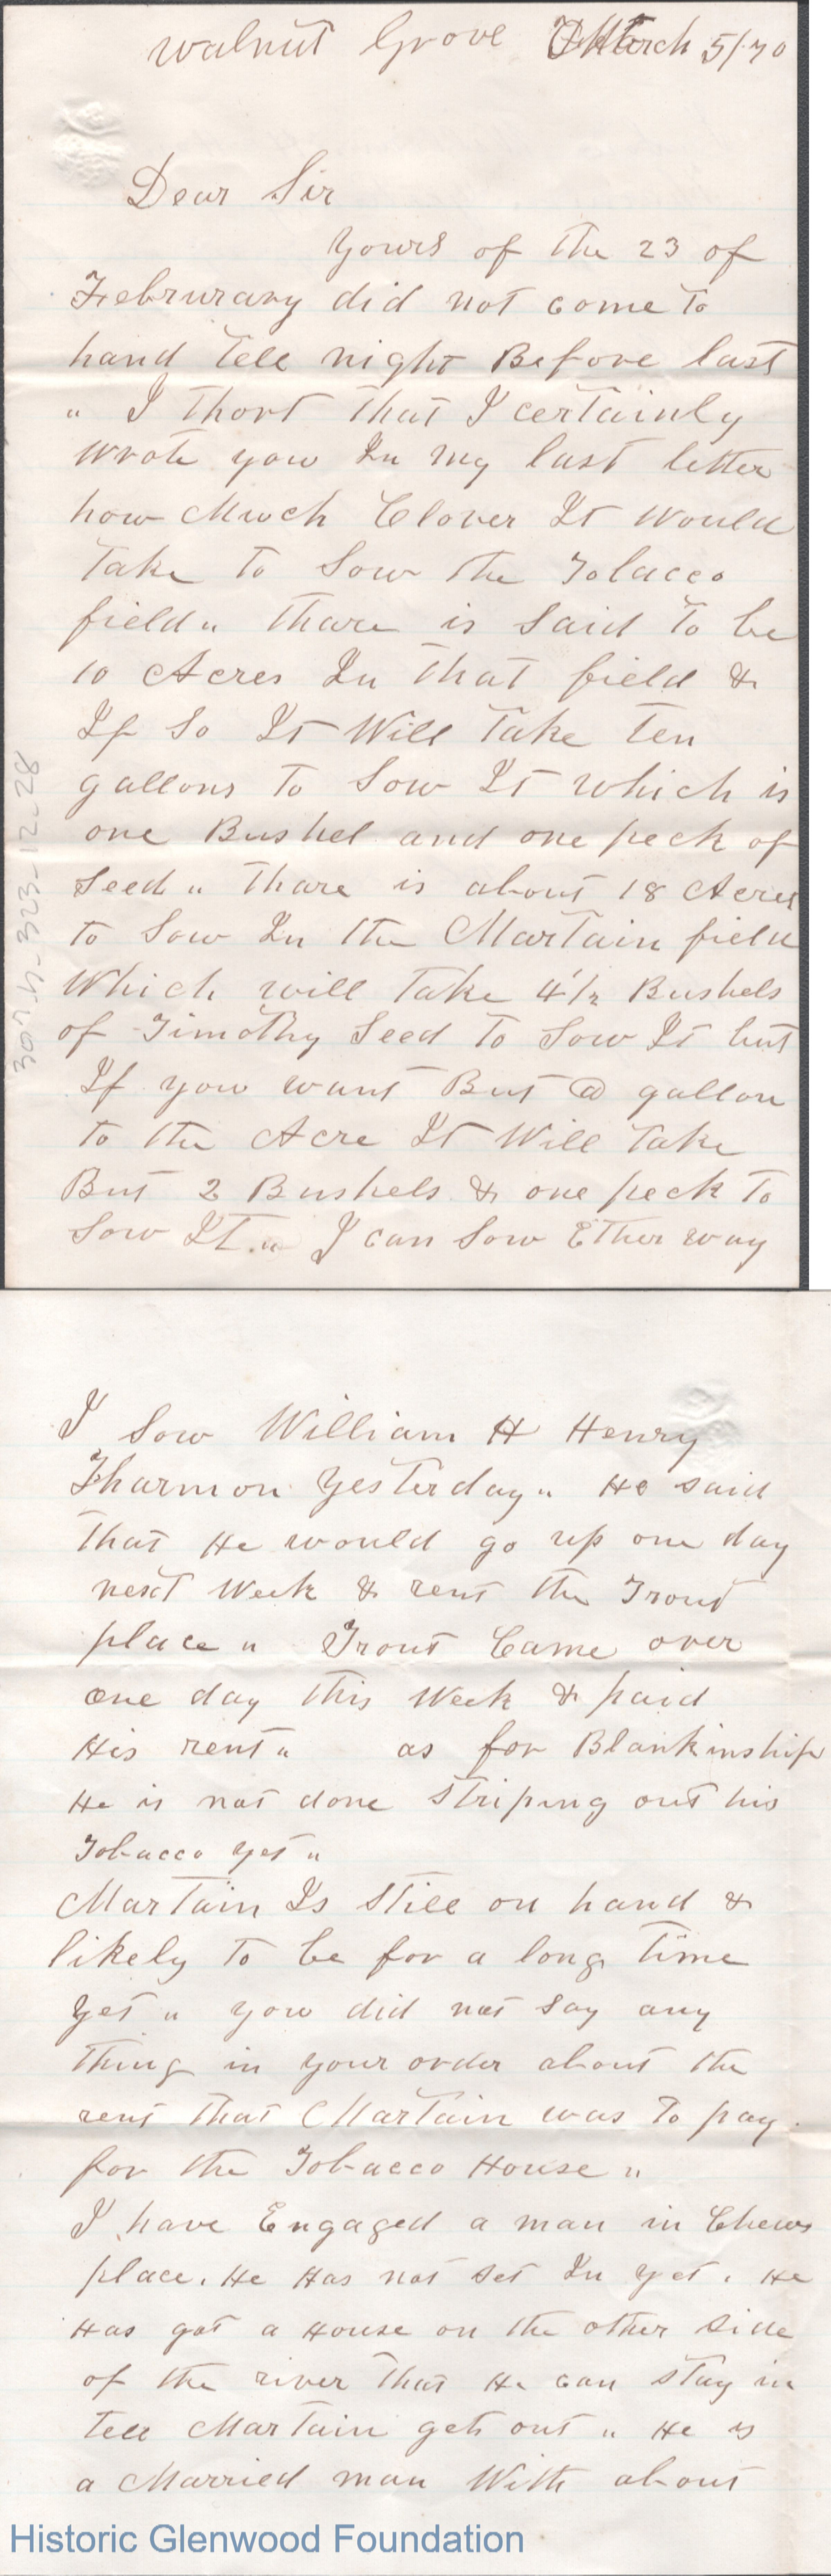 Walnut Grove March 5/70
Dear Sir
yours of the 23 of
Februrary did not come to
hand tell night Before last
" I thort that I certainly
wrote you In my last letter
how Much Clover It would
take to Sow the Tobacco
field " thare is Said to be
10 Acres In that field &
If So It Will take ten
gallons to Sow It which is
one Bushel and one peck of
Seed " thare is about 18 Acres
to Sow In the Martain field
Which will take 4 1/2 Bushels
of Timothy Seed to Sow It but
If you want But @ gallon
to the Acre It Will take
But 2 Bushels & one peck to
Sow It. " I can Sow Ether way
307.h-323-12-28
I Sow William H Henry
Tharmon yesterday " He said
that He would go up one day
next Week & rent the Trout
place " Trout Came over
one day this Week & paid
His rent " as for Blankinship
He is not done Striping out his
Tobacco yet "
Martain Is Still on hand &
likely to be for a long time
yet " you did not say any
thing in your order about the
rent that Martain was to pay
for the Tobacco House "
I have Engaged a man in Chews
place. He Has not set In yet. He
Has got a House on the other side
of the river that He can stay in
tell Martain gets out " He is
a Married man With about
Historic Glenwood Foundation